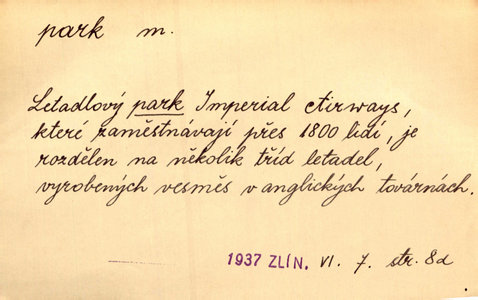 park m.
Letadlový park Imperial Airways,
které zaměstnávají přes 1800 lidí, je
rozdělen na několik tříd letadel,
vyrobených vesměs v anglických továrnách.
1937 ZLÍN. VI. 7. str. 8d